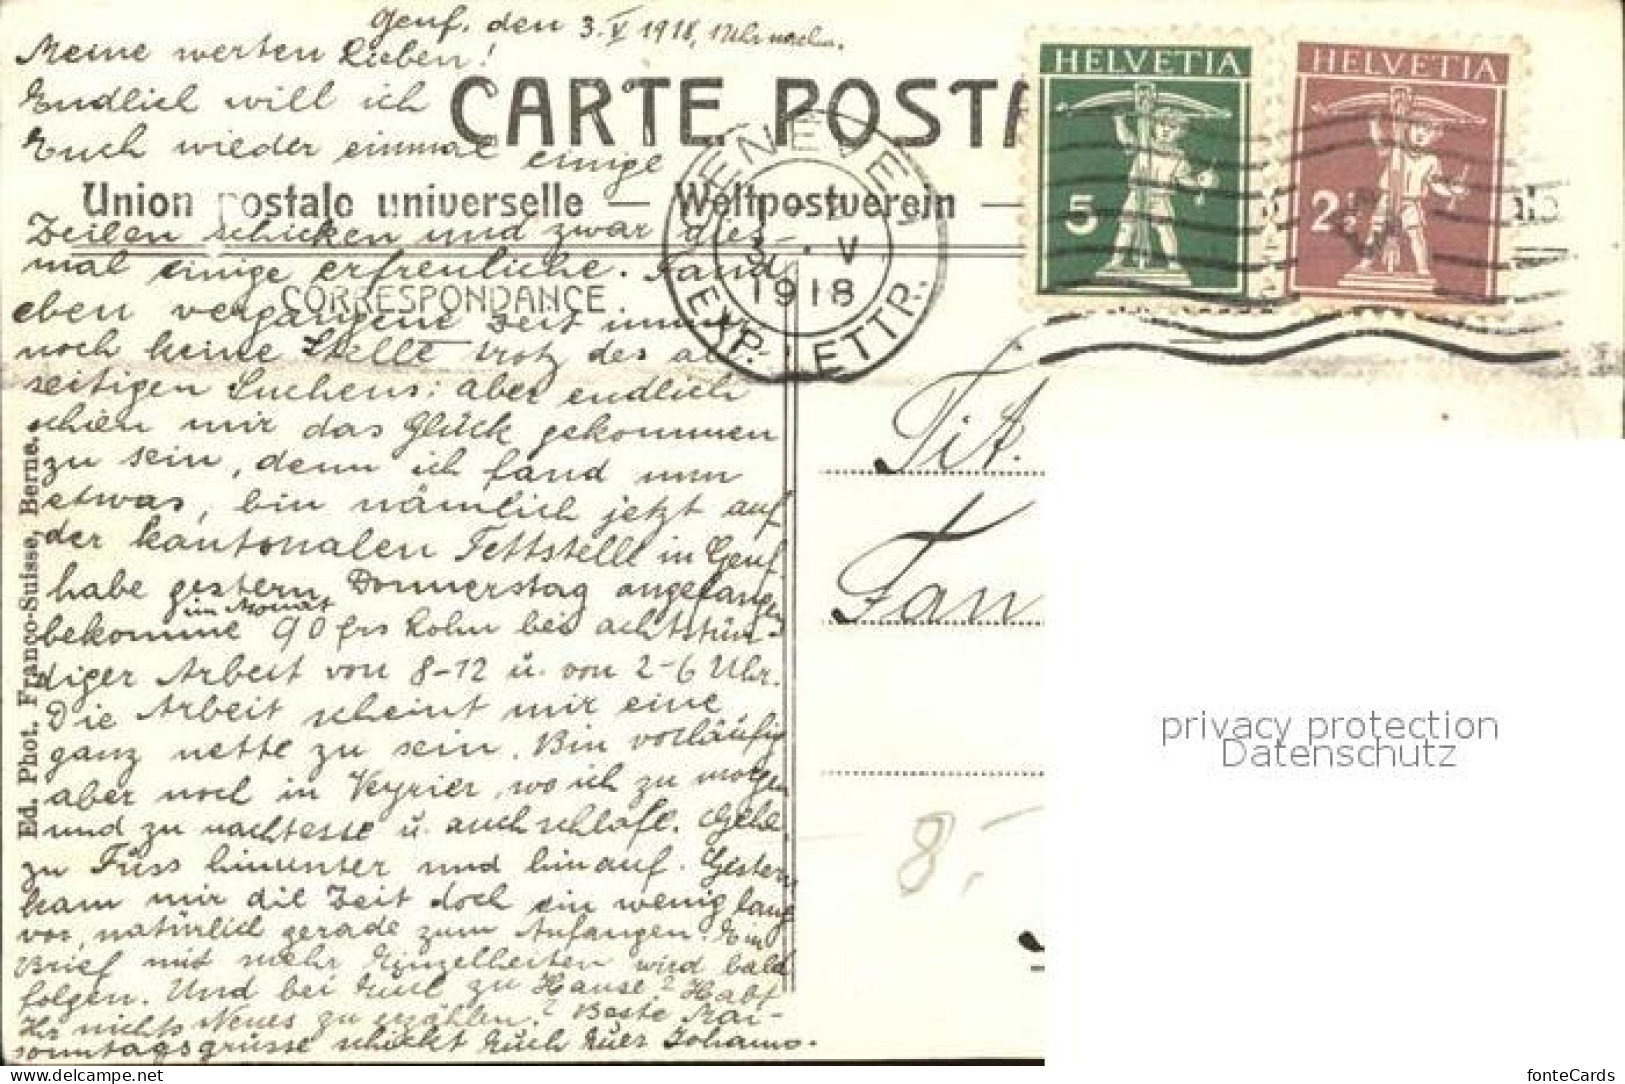 Genf, den 3. V 1918, 1 Uhr nachm.
Meine werten Lieben!
Endlich will ich
Euch wieder einmal einige
CARTE POSTA
Union postale universelle — Weltpostverein —
Zeilen schicken und zwar dies-
mal einige erfreuliche. Fand
CORRESPONDANCE
eben vergangene Zeit immer
noch keine Stelle trotz des all
seitigen Suchens; aber endlich
schien mir das Glück gekommen
zu sein, denn ich fand nun
etwas, bin nämlich jetzt auf
der kantonalen Fettstelle in Genf
habe gestern Donnerstag angefangen
bekomme im Monat 90 frs Lohn bei achtstün-
diger Arbeit von 8-12 u. von 2-6 Uhr.
Die Arbeit scheint mir eine
ganz nette zu sein. Bin vorläufig
aber noch in Veyrier, wo ich zu morgen
und zu nachtesse u. auch schlafe. Gehe
zu Fuss hinunter und hinauf. Gestern
kam mir die Zeit doch ein wenig lang
vor, natürlich gerade zum Anfangen. Ein
Brief mit mehr Einzelheiten wird bald
folgen. Und bei Euch zu Hause? Habt
Ihr nichts Neues zu erzählen? Beste Mai-
sonntagsgrüsse schickt Euch Euer Johann.
Ed. Phot. Franco-Suisse, Berne.
HELVETIA
5
HELVETIA
2½
GENEVE 1
3. V
1918
EXP. LETTR.
Tit.
Fam
8,-
privacy protection
Datenschutz
https://www.delcampe.net
fonteCards